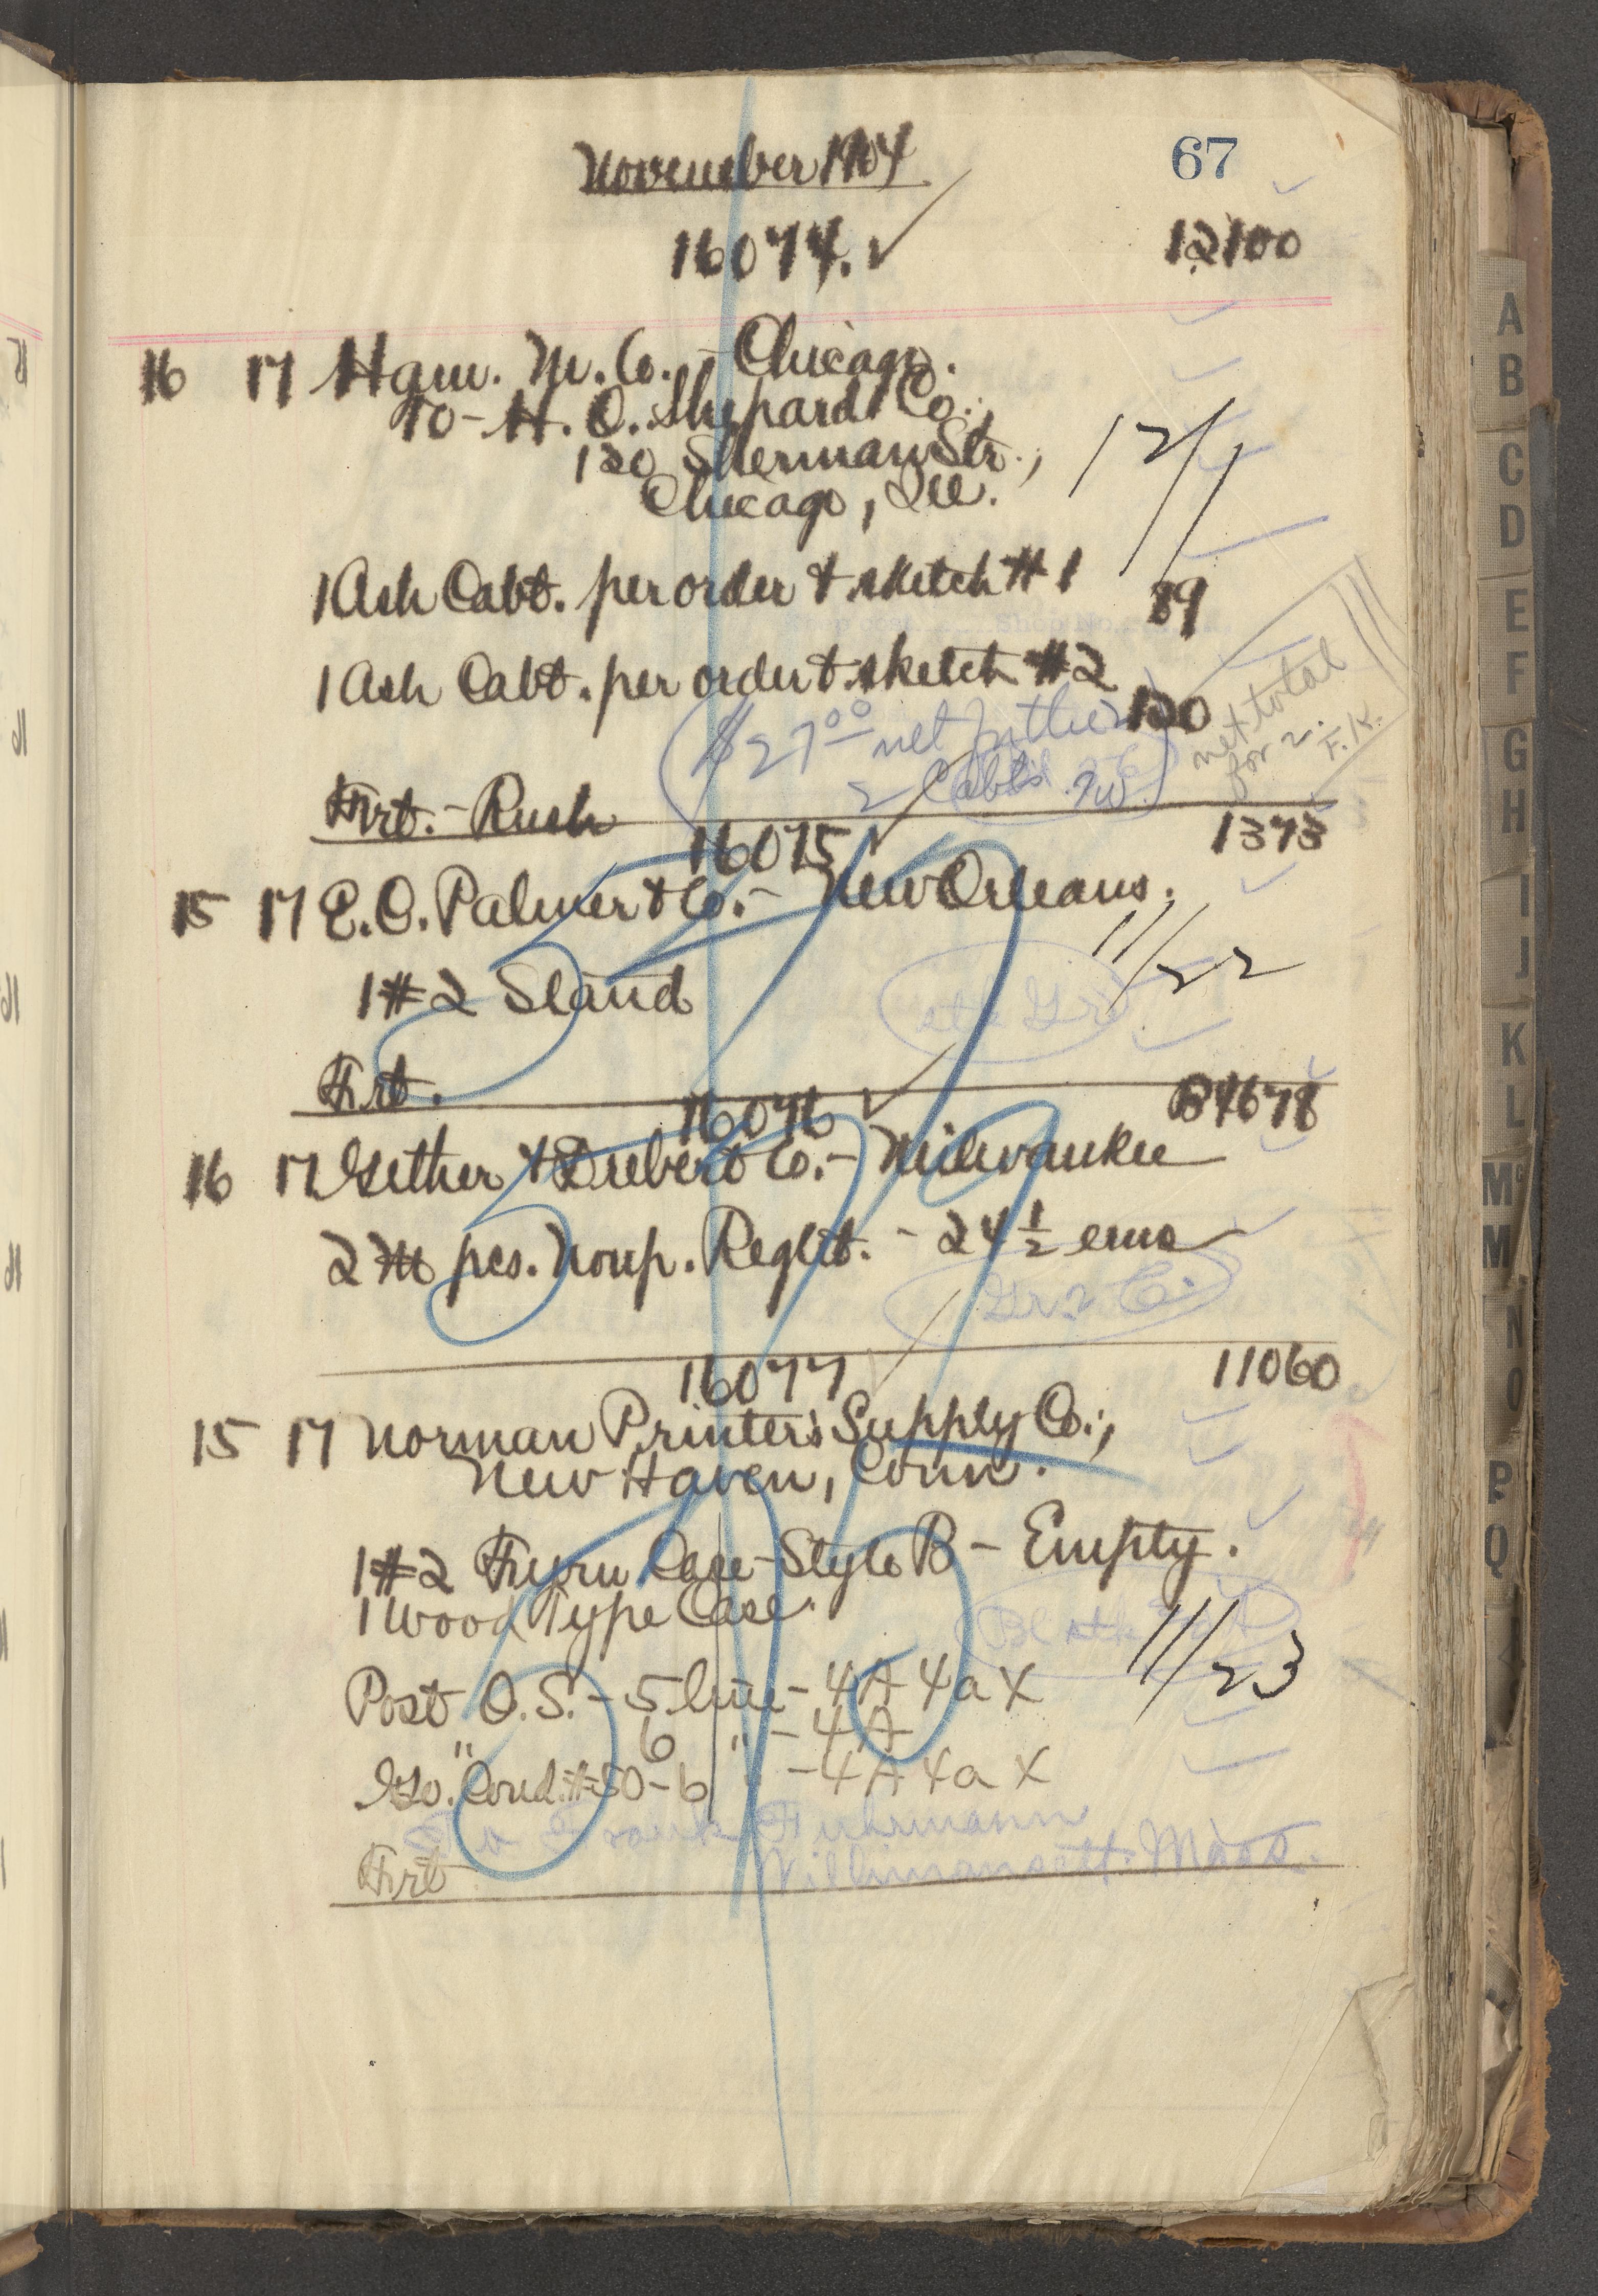 November 1904
67
16074. ✓
12100
16 17 Ham. M. Co. - Chicago.
To - H. O. Shepard Co.,
120 Sherman Str.,
Chicago, Ill.
12/1
1 Ash Cabt. per order & sketch #1 89
1 Ash Cabt. per order & sketch #2 120
($27.00 net
2 Cabts.
net total
for 2. F.K.
Frt. - Rush
16075 ✓
1373
15 17 E. C. Palmer & Co. - New Orleans.
11/22
1 #2 Stand
Frt.
16076 ✓
B4678
16 17 Gether & Drebert Co. - Milwaukee
2 M pcs. Nonp. Reglet. - 24 1/2 ems
16077
11060
15 17 Norman Printers Supply Co.,
New Haven, Conn.
1 #2 Case - Style B - Empty.
1 Wood Type Case.
11/23
Post O.S. - 5 line - 4A 4a X
" 6 " - 4A
Go. Cond. #50 - 6 " - 4A 4a X
To Frank Fuhrmann
Willimansett. Mass.
Frt
A
B
C
D
E
F
G
H
I
J
K
L
Mc
M
N
O
P
Q